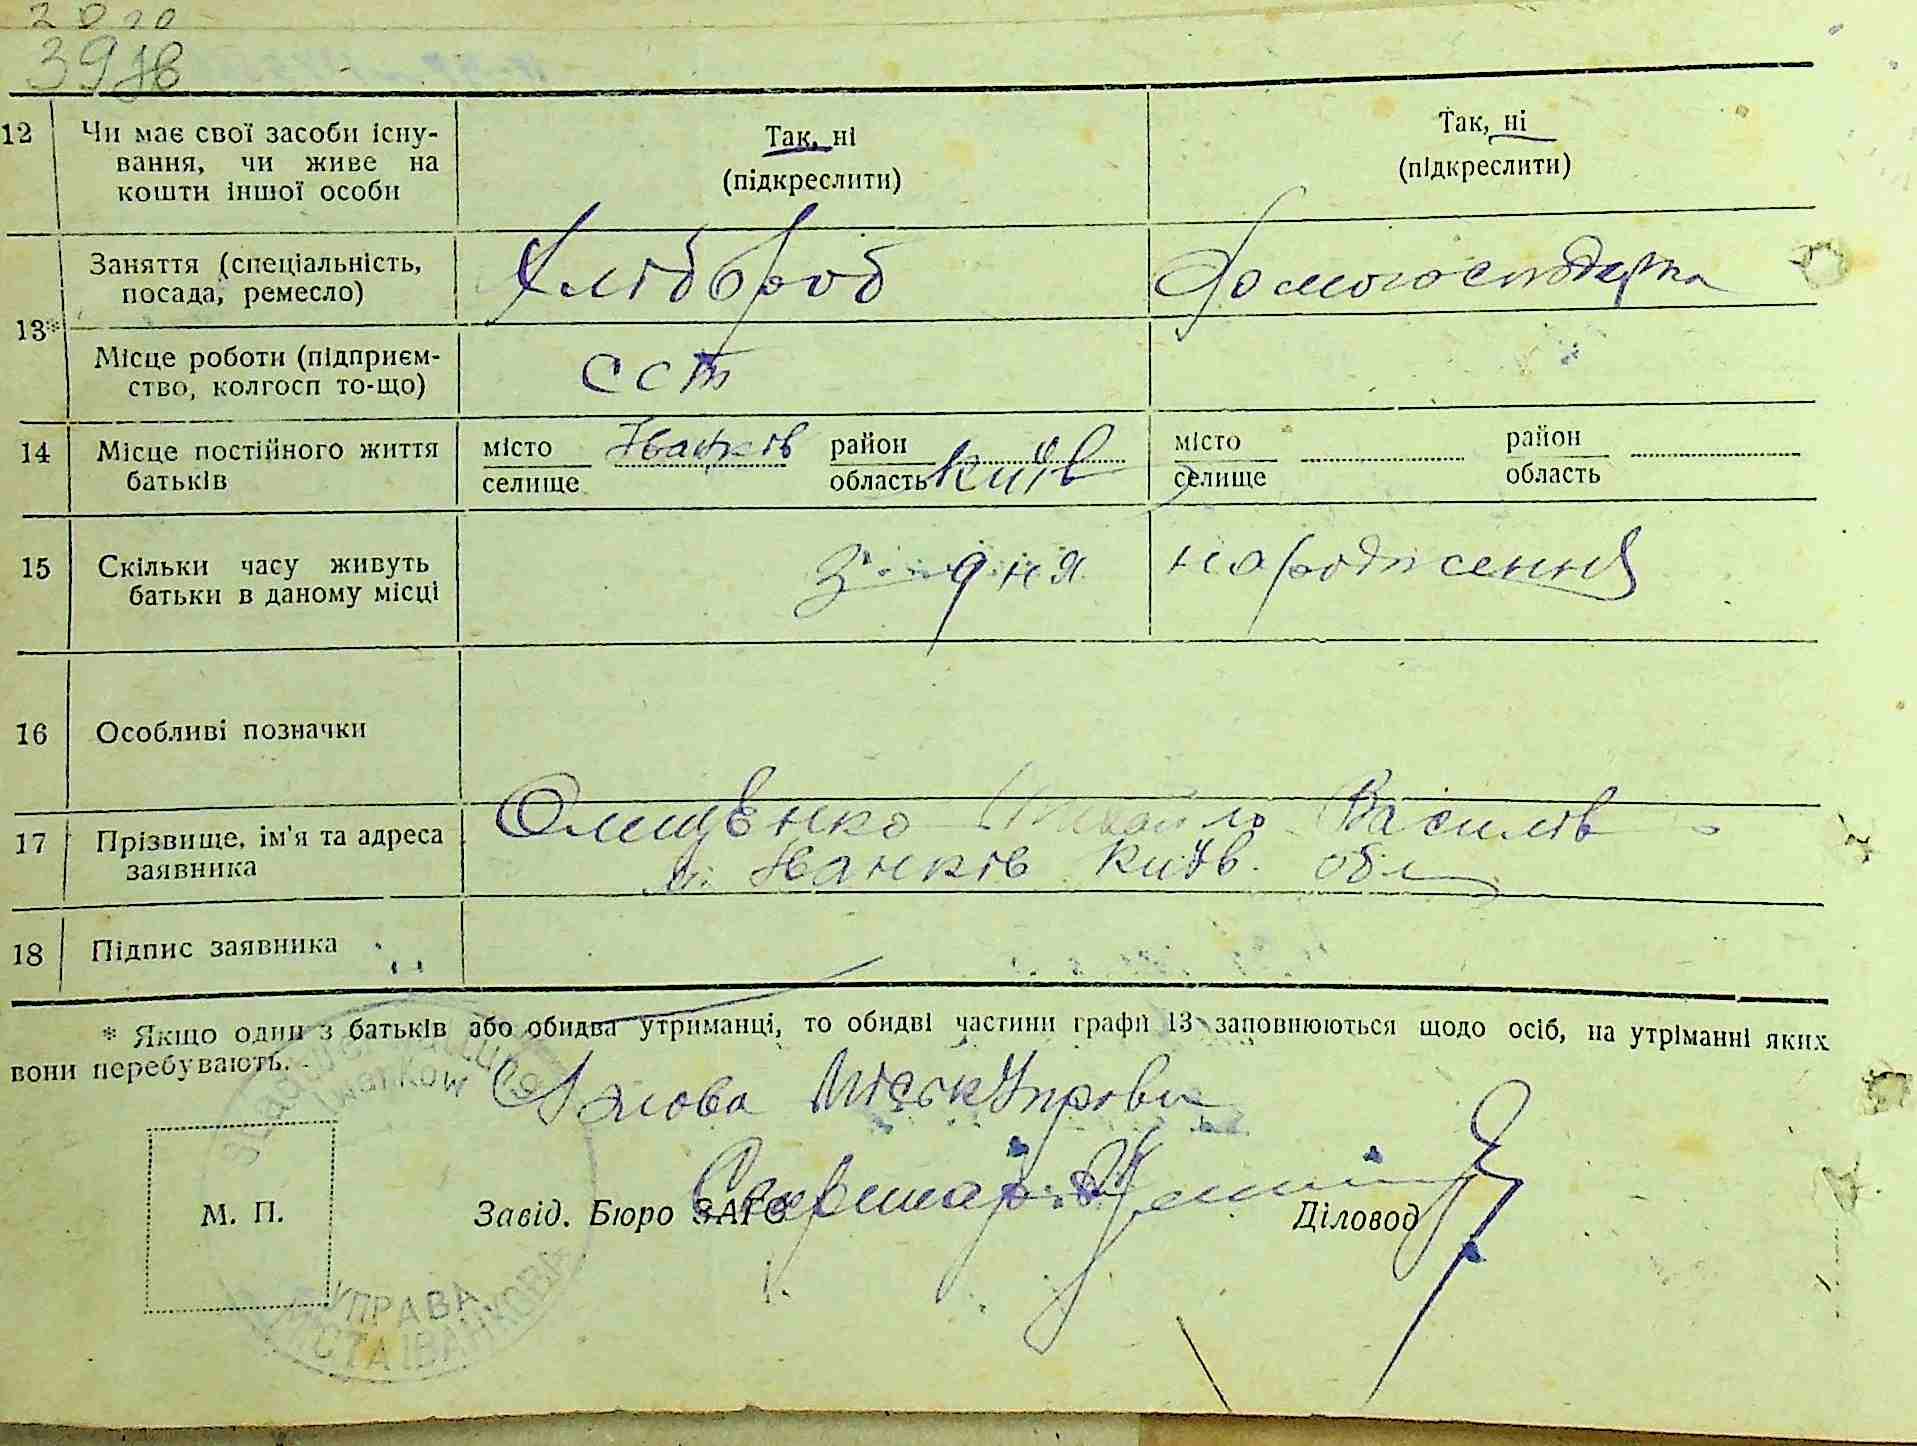 39 зв
12 Чи має свої засоби існу-
вання, чи живе на
кошти іншої особи
Так, ні
(підкреслити)
Так, ні
(підкреслити)
13*
Заняття (спеціальність,
посада, ремесло)
Хлібороб
Домогосподарка
Місце роботи (підприєм-
ство, колгосп то-що)
ССТ
14 Місце постійного життя
батьків
місто Іванків район
селище область Київ
місто район
селище область
15 Скільки часу живуть
батьки в даному місці
З дня народження
16 Особливі позначки
17 Прізвище, ім'я та адреса
заявника
Олищенко Михайло Василів
м. Іванків Київ. обл
18 Підпис заявника
* Якщо один з батьків або обидва утриманці, то обидві частини графи 13 заповнюються щодо осіб, на утріманні яких
вони перебувають.
Iwankow
Голова МіськУправи
Секретар
М. П.
Завід. Бюро ЗАГС
Діловод
УПРАВА
МІСТА ІВАНКОВА